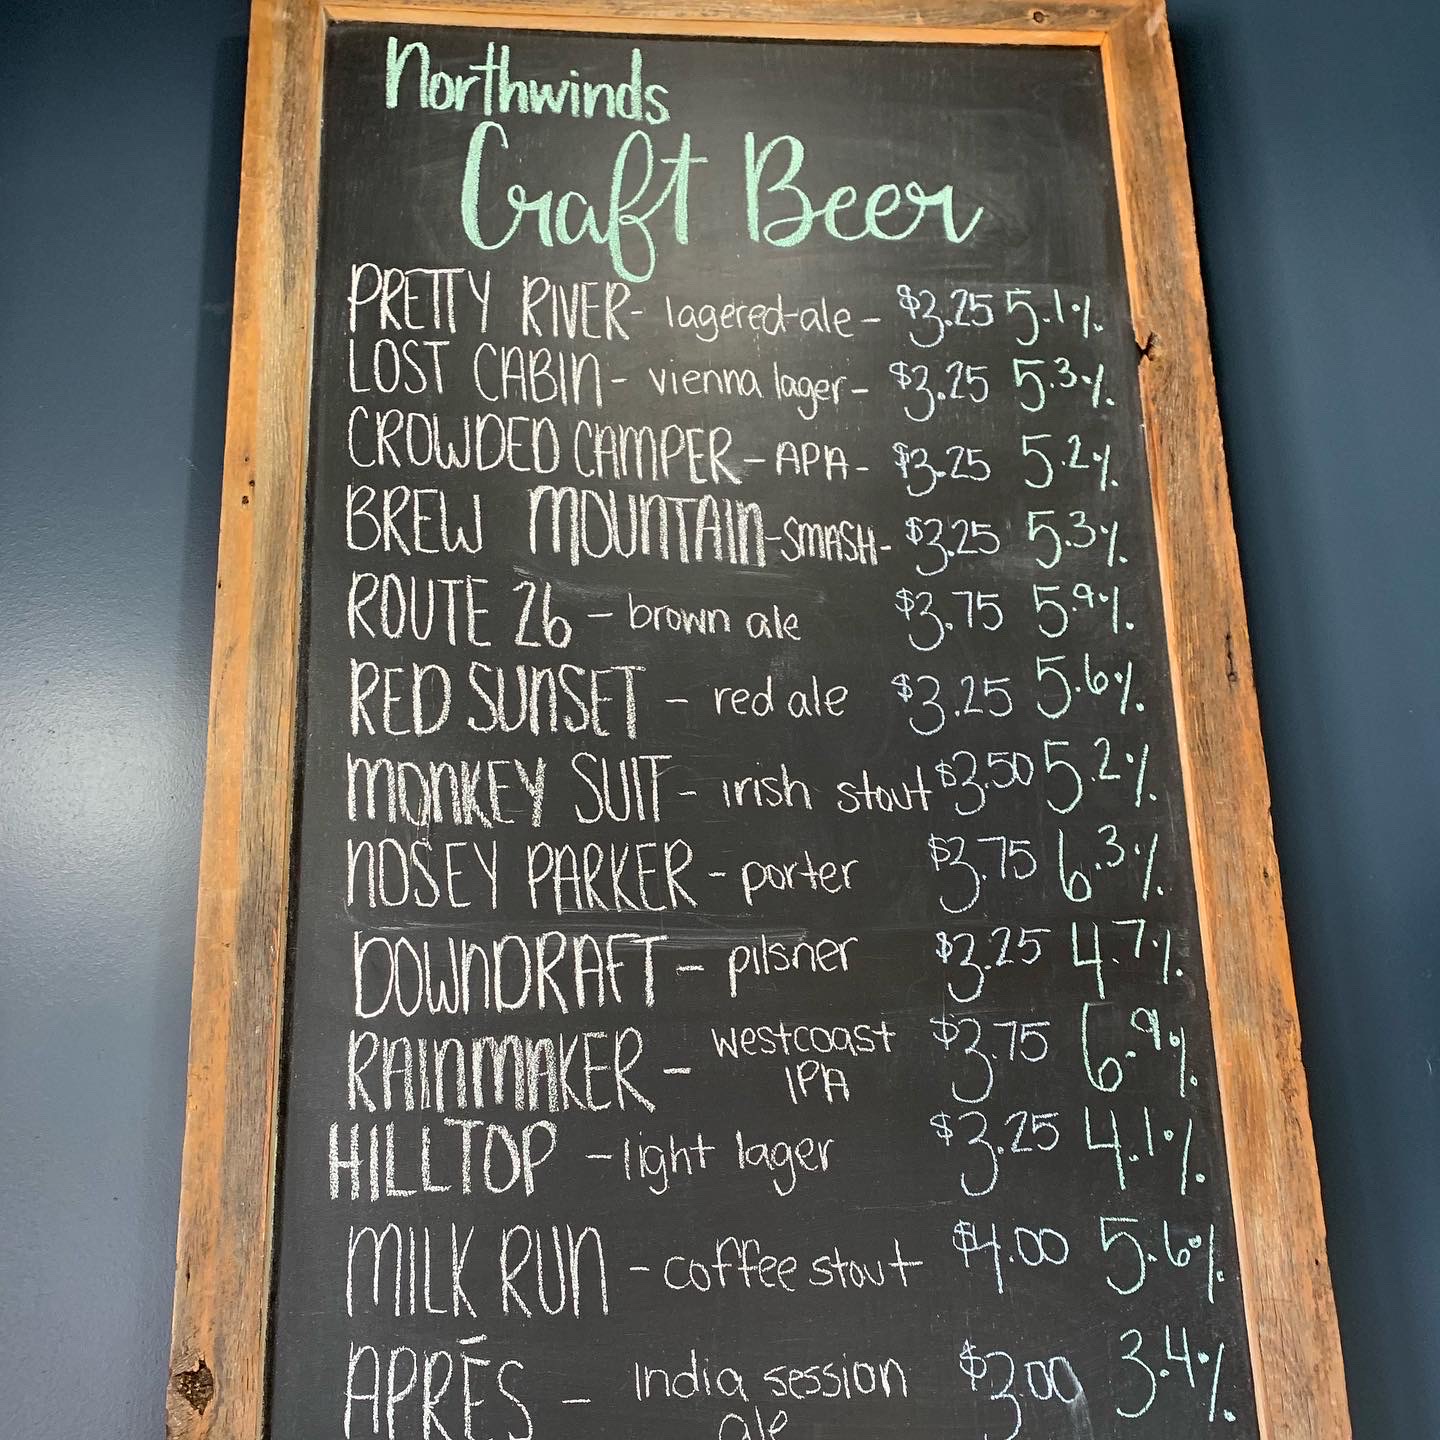 Northwinds
Craft Beer
PRETTY RIVER - lagered-ale - $3.25 5.1%
LOST CABIN - vienna lager - $3.25 5.3%
CROWDED CAMPER - APA - $3.25 5.2%
BREW MOUNTAIN - SMASH - $3.25 5.3%
ROUTE 26 - brown ale $3.75 5.9%
RED SUNSET - red ale $3.25 5.6%
MONKEY SUIT - irish stout $3.50 5.2%
NOSEY PARKER - porter $3.75 6.3%
DOWNDRAFT - pilsner $3.25 4.7%
RAINMAKER - westcoast $3.75 6.9%
IPA
HILLTOP - light lager $3.25 4.1%
MILK RUN - coffee stout $4.00 5.6%
APRÉS - India session $3.00 3.4%
ale